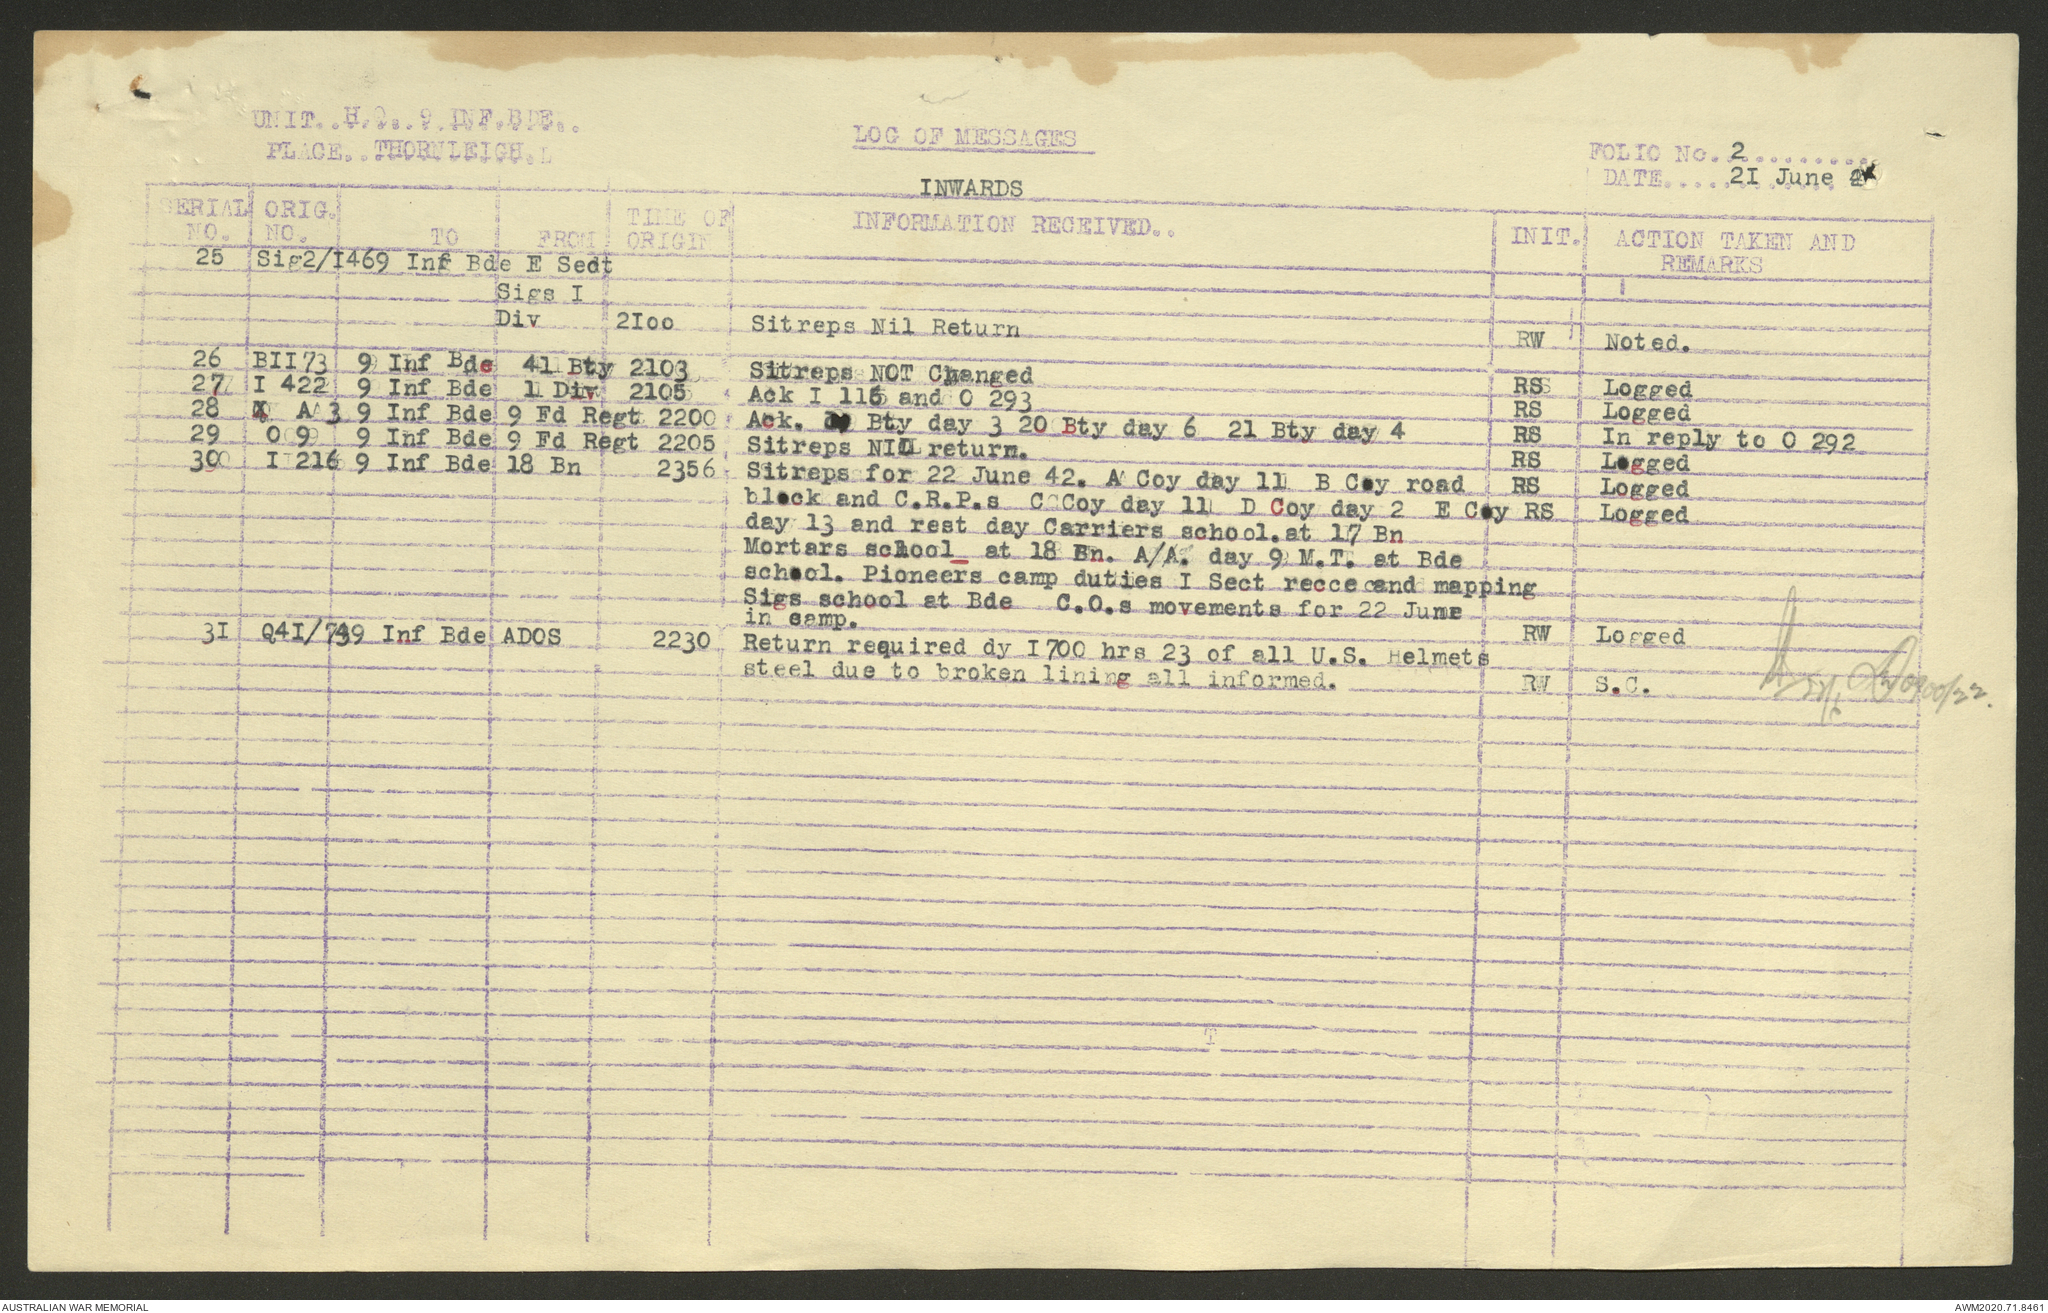 UNIT..H.Q..9.INF.BDE..
PLACE..THORNLEIGH.
LOG OF MESSAGES
FOLIO No.2..........
DATE............21 June
INWARDS
SERIAL NO. ORIG. NO. TO FROM TIME OF ORIGIN INFORMATION RECEIVED.. INIT. ACTION TAKEN AND REMARKS
25 Sig2/I469 Inf Bde E Sedt
Sigs I
Div 2Ioo Sitreps Nil Return RW Noted.
26 BII73 9 Inf Bde 41 Bty 2103 Sitreps NOT Changed RS Logged
27 I 422 9 Inf Bde 1 Div 2105 Ack I 116 and O 293 RS Logged
28 A 3 9 Inf Bde 9 Fd Regt 2200 Ack. Bty day 3 20 Bty day 6 21 Bty day 4 RS In reply to O 292
29 O 9 9 Inf Bde 9 Fd Regt 2205 Sitreps NIL return. RS Logged
30 I 216 9 Inf Bde 18 Bn 2356 Sitreps for 22 June 42. A Coy day 11 B Coy road RS Logged
block and C.R.P.s C Coy day 11 D Coy day 2 E Coy RS Logged
day 13 and rest day Carriers school.at 17 Bn
Mortars school at 18 Bn. A/A. day 9 M.T. at Bde
school. Pioneers camp duties I Sect recce and mapping
Sigs school at Bde C.O.s movements for 22 June
in camp. RW Logged
3I Q4I/739 Inf Bde ADOS 2230 Return required dy I700 hrs 23 of all U.S. Helmets
steel due to broken lining all informed. RW S.C.
AUSTRALIAN WAR MEMORIAL
AWM2020.71.8461